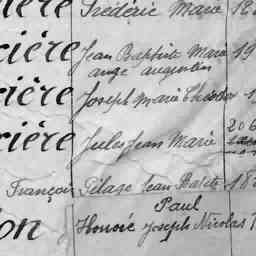 ière Frédéric Marie 18
rière Jean Baptiste Marie 19
ange augustin
rière Joseph Marie Théodore 1
rière Jules Jean Marie 206
François Pélage Jean Baste 18
Paul
ion Honoré Joseph Nicolas 1